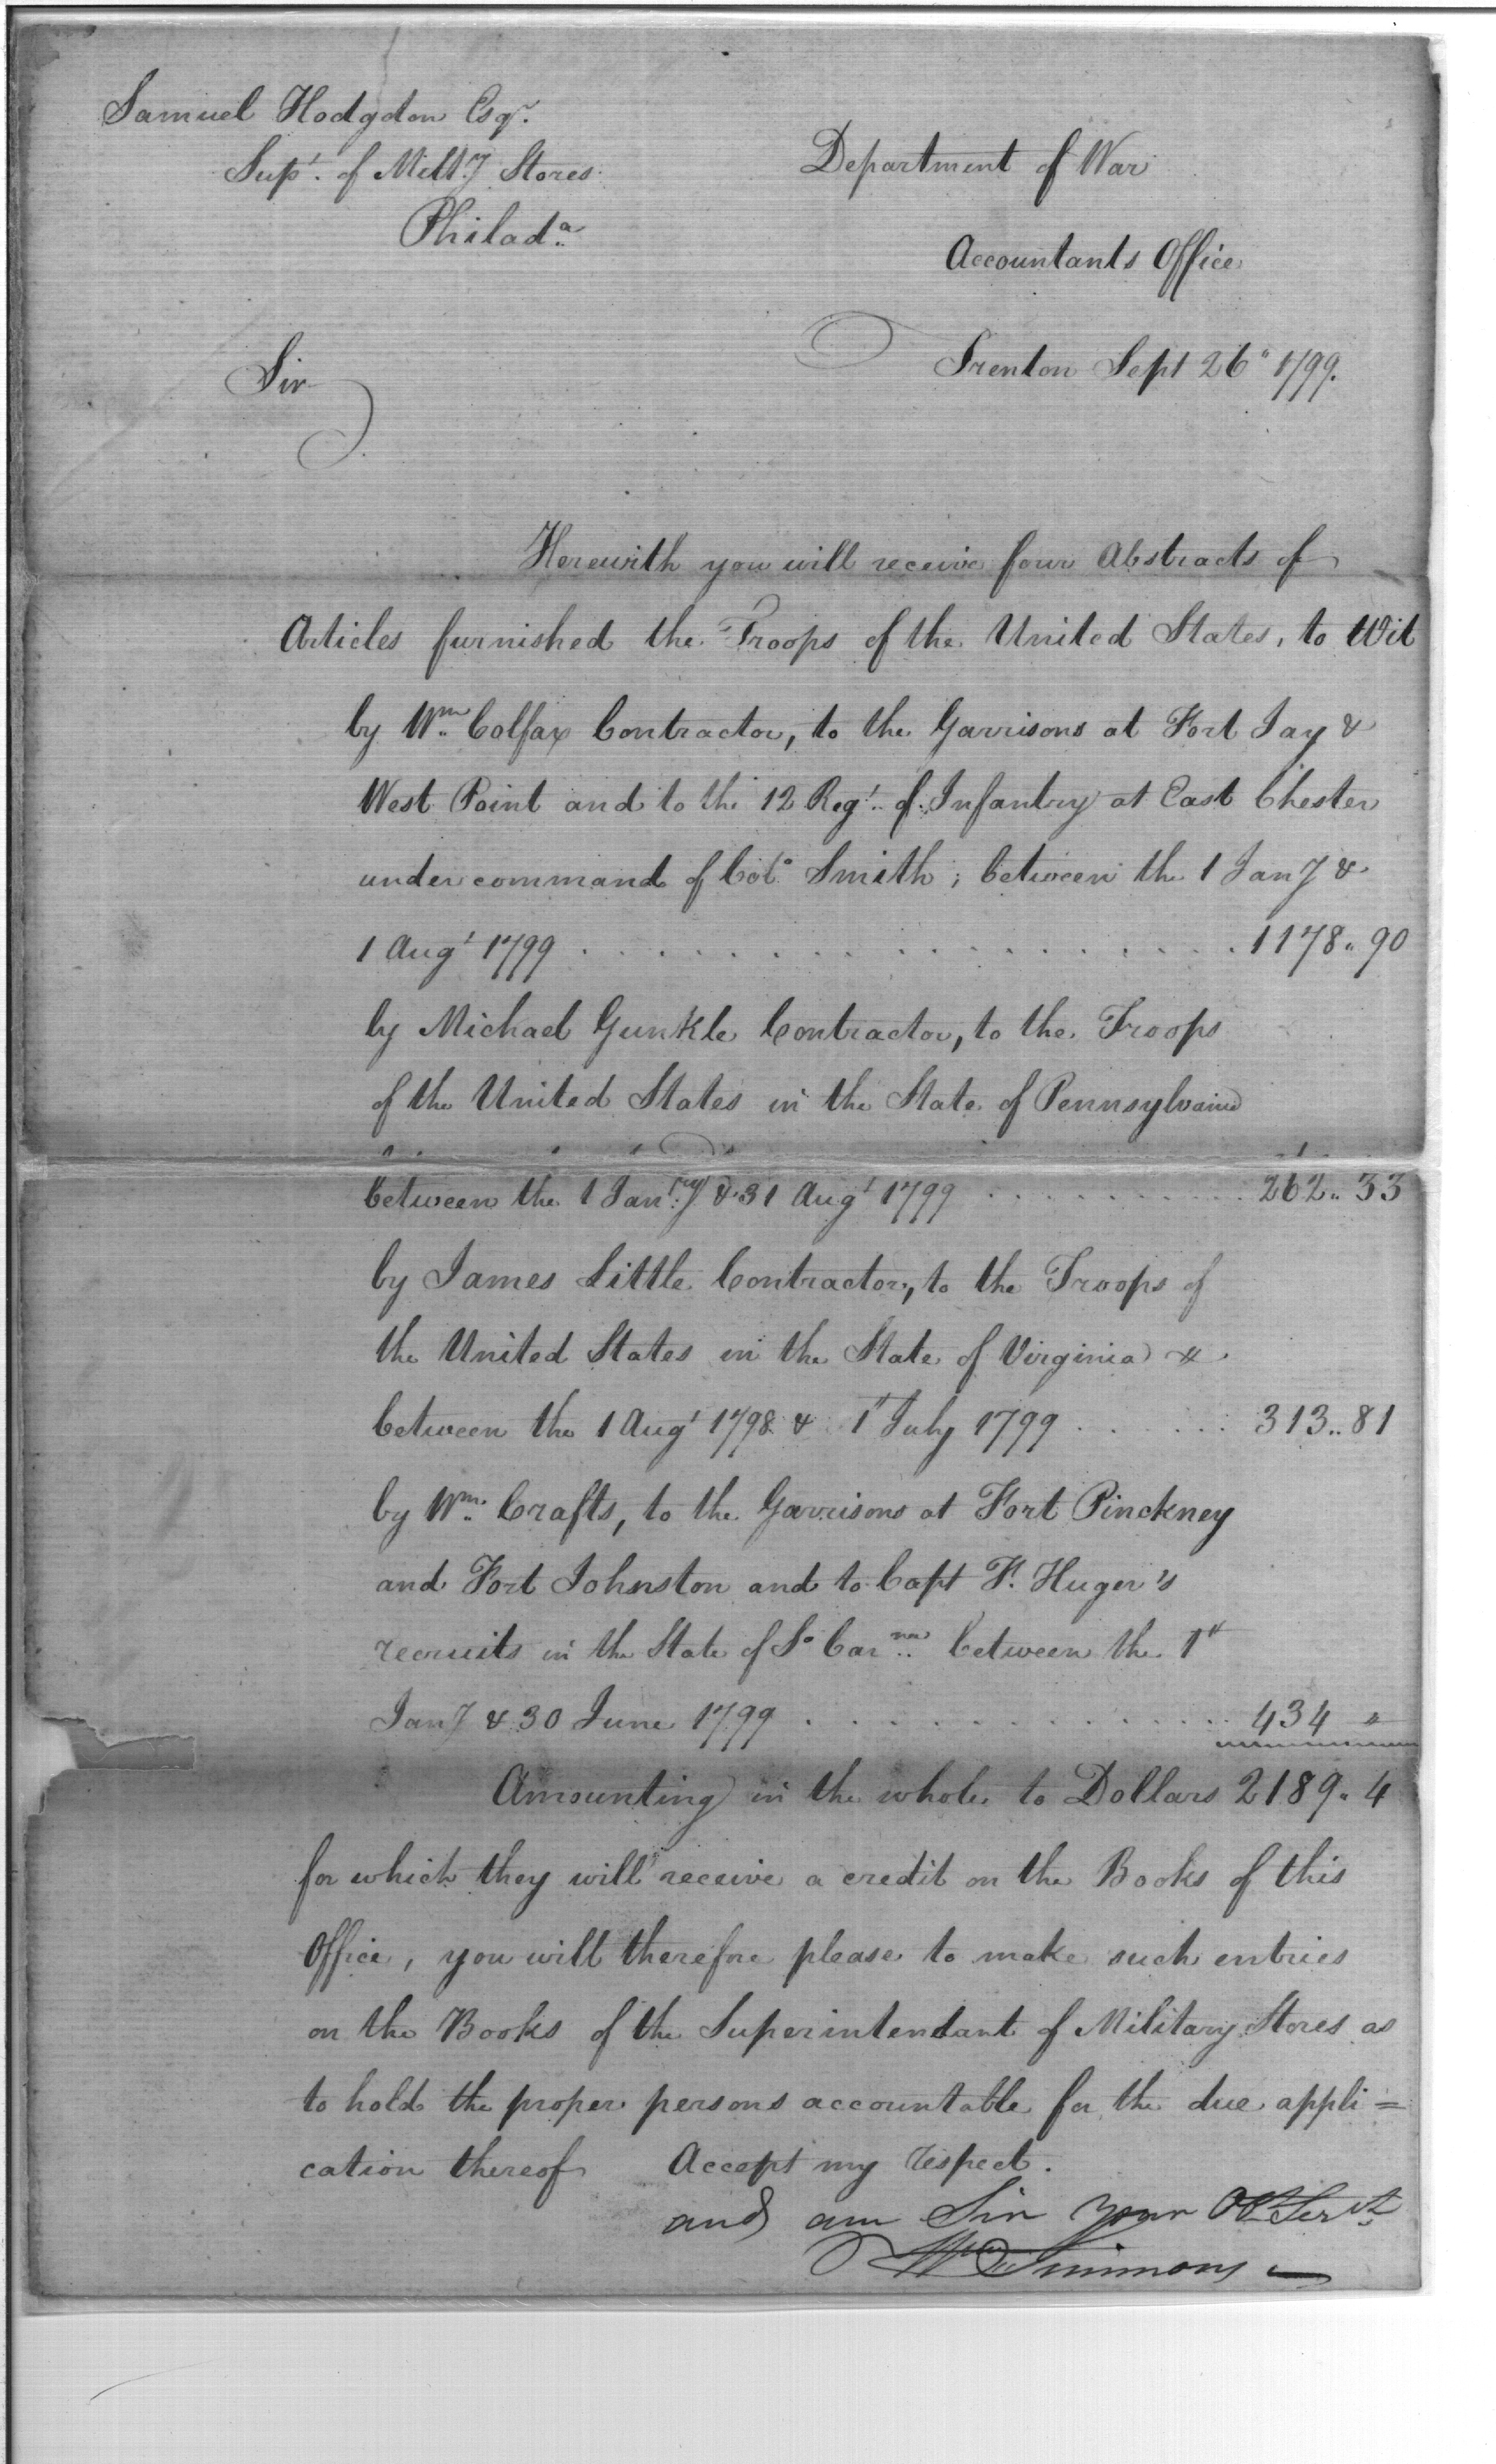 Samuel Hodgdon Esqr.
Supt. of Milty Stores
Philada.
Department of War
Accountants Office
Trenton Sept 26" 1799.
Sir
Herewith you will receive four Abstracts of
Articles furnished the Troops of the United States, to Wit
by Wm. Colfax Contractor, to the Garrisons at Fort Jay &
West Point and to the 12 Regt. of Infantry at East Chester
under command of Colo. Smith; between the 1 Jany &
1 Augt 1799 . . . . . . . . . . . . . . . . . 1178.. 90
by Michael Gunkle Contractor, to the Troops
of the United States in the State of Pennsylvania
between the 1 Jany. & 31 Augt 1799 . . . . . . . . . . 262.. 33
by James Little Contractor, to the Troops of
the United States in the State of Virginia &
between the 1 Augt 1798 & 1st July 1799 . . . . . . 313.. 81
by Wm. Crafts, to the Garrisons at Fort Pinckney
and Fort Johnston and to Capt F. Huger's
recruits in the State of So Carna.. between the 1st
Jany & 30 June 1799 . . . . . . . . . . . . . . . 434 "
Amounting in the whole to Dollars 2189.. 4
for which they will receive a credit on the Books of this
Office, you will therefore please to make such entries
on the Books of the Superintendant of Military Stores as
to hold the proper persons accountable for the due appli=
cation thereof Accept my respect.
and am Sir your Obt Servt
Wm Simmons